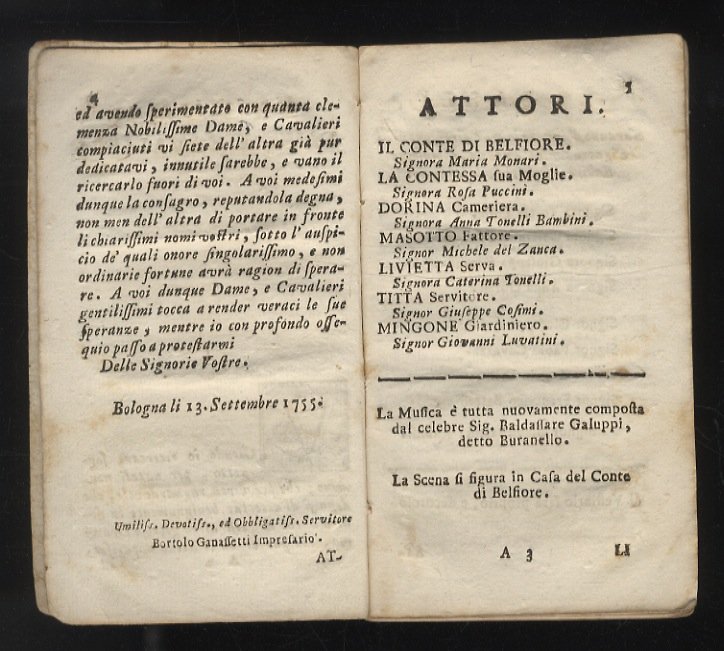 4
ed avendo ſperimentato con quanta cle-
menza Nobiliſſime Dame, e Cavalieri
compiaciuti vi ſiete dell' altra già pur
dedicatavi, innutile ſarebbe, e vano il
ricercarlo fuori di voi. A voi medeſimi
dunque la conſagro, reputandola degna,
non men dell' altra di portare in fronte
li chiariſſimi nomi voſtri, ſotto l' auſpi-
cio de' quali onore ſingolariſſimo, e non
ordinarie fortune avrà ragion di ſpera-
re. A voi dunque Dame, e Cavalieri
gentiliſſimi tocca a render veraci le ſue
ſperanze, mentre io con profondo oſſe-
quio paſſo a proteſtarmi
Delle Signorie Voſtre.
Bologna li 13. Settembre 1755.
Umiliſs. Devotiſs., ed Obbligatiſs. Servitore
Bortolo Ganaſſetti Impreſario.
AT-
5
ATTORI.
IL CONTE DI BELFIORE.
Signora Maria Monari.
LA CONTESSA ſua Moglie.
Signora Roſa Puccini.
DORINA Cameriera.
Signora Anna Tonelli Bambini.
MASOTTO Fattore.
Signor Michele del Zanca.
LIVIETTA Serva.
Signora Caterina Tonelli.
TITTA Servitore.
Signor Giuſeppe Coſimi.
MINGONE Giardiniero.
Signor Giovanni Luvatini.
La Muſica è tutta nuovamente compoſta
dal celebre Sig. Baldaſſare Galuppi,
detto Buranello.
La Scena ſi figura in Caſa del Conte
di Belfiore.
A 3
LI